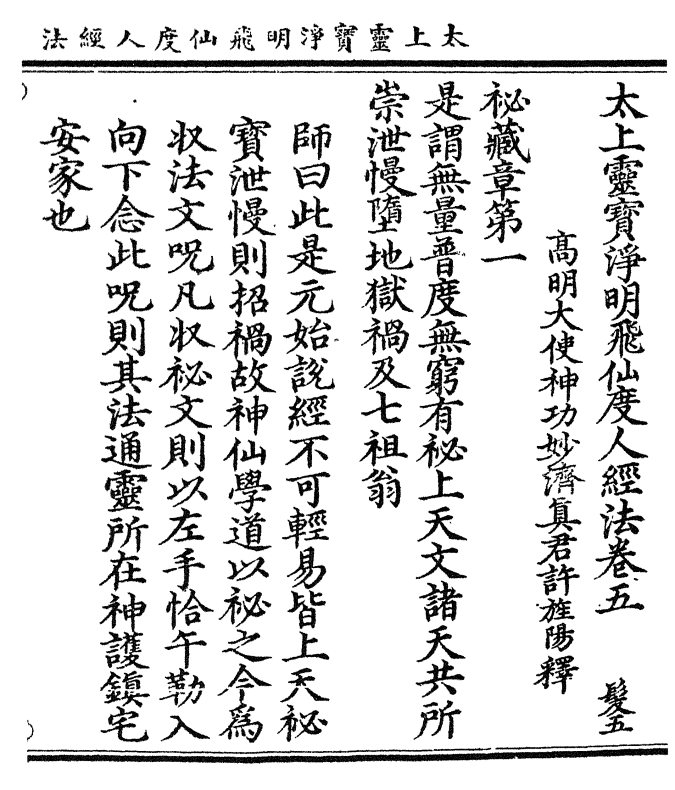 太上靈寶淨明飛仙度人經法
太上靈寶淨明飛仙度人經法卷五　髮五
高明大使神功妙濟真君許旌陽釋
祕藏章第一
是謂無量普度無窮有祕上天文諸天共所
崇泄慢墮地獄禍及七祖翁
師曰此是元始說經不可輕易皆上天祕
寶泄慢則招禍故神仙學道以祕之今為
收法文呪凡收祕文則以左手恰午勒入
向下念此呪則其法通靈所在神護鎮宅
安家也